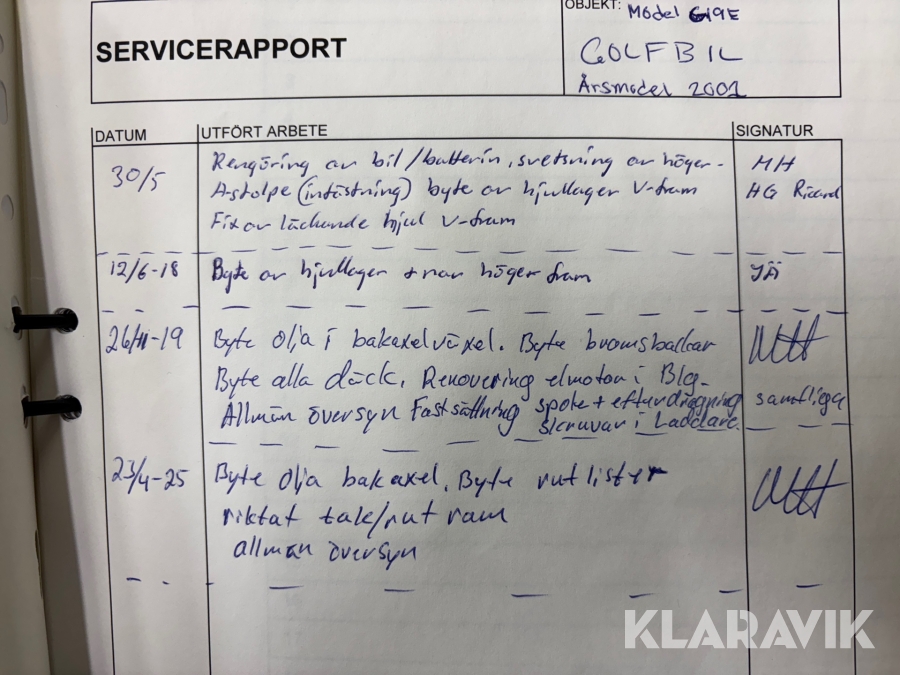 SERVICERAPPORT
OBJEKT: Model G19E
GOLFBIL
Årsmodel 2001
DATUM UTFÖRT ARBETE SIGNATUR
30/5 Rengöring av bil/batterin, svetsning av höger- HH
A-stolpe (infästning) byte av hjullager V-fram HG Ricard
Fix av läckande hjul V-fram
12/6-18 Byte av hjullager + nav höger fram JÄ
26/11-19 Byte olja i bakaxelväxel. Byte bromsbackar
Byte alla däck, Renovering elmotor i Blg-
Allmän översyn Fastsättning spole + efterdragning samtliga
skruvar i Laddare.
23/4-25 Byte olja bakaxel, Byte rutlister
riktat tak/rut ram
allmän översyn
KLARAVIK